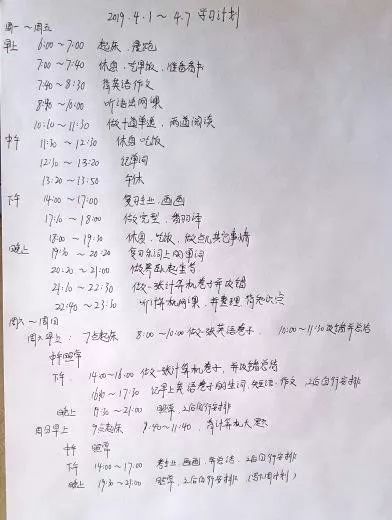 2019.4.1～4.7 学习计划
周一～周五
早上 6:00～7:00 起床、晨跑
7:00～7:40 休息、吃早饭、
7:40～8:30 背英语作文
8:40～10:00 听语法网课
10:10～11:30 做十道单选，两道阅读
中午 11:30～12:30 休息吃饭
12:30～13:20 记单词
13:20～13:50 午休
下午 14:00～17:00 复习专业，画画
17:10～18:00 做完型，翻译
18:00～19:30 休息，吃饭，做点儿其它事情
晚上 19:30～20:20 复习早上的单词
20:20～21:00
21:10～22:30 做一张计算机卷子并改错
22:40～23:30 听计算机网课，并整理、背知识点
周六～周日
周六早上： 7点起床 8:00～10:00 做一张英语卷子， 10:00～11:30 改错并总结
中午照常
下午 14:00～16:00 做一张计算机卷子，并改错总结
16:10～17:30 记早上英语卷子的生词、短语、作文，之后自行安排
晚上 19:30～21:00 照常，之后自行安排
周日早上 9点起床 9:40～11:40，背计算机大题
中午 照常
下午 14:00～17:00 专业，画画，并总结，之后自行安排
晚上 19:30～21:00 照常，之后自行安排（写下周计划）